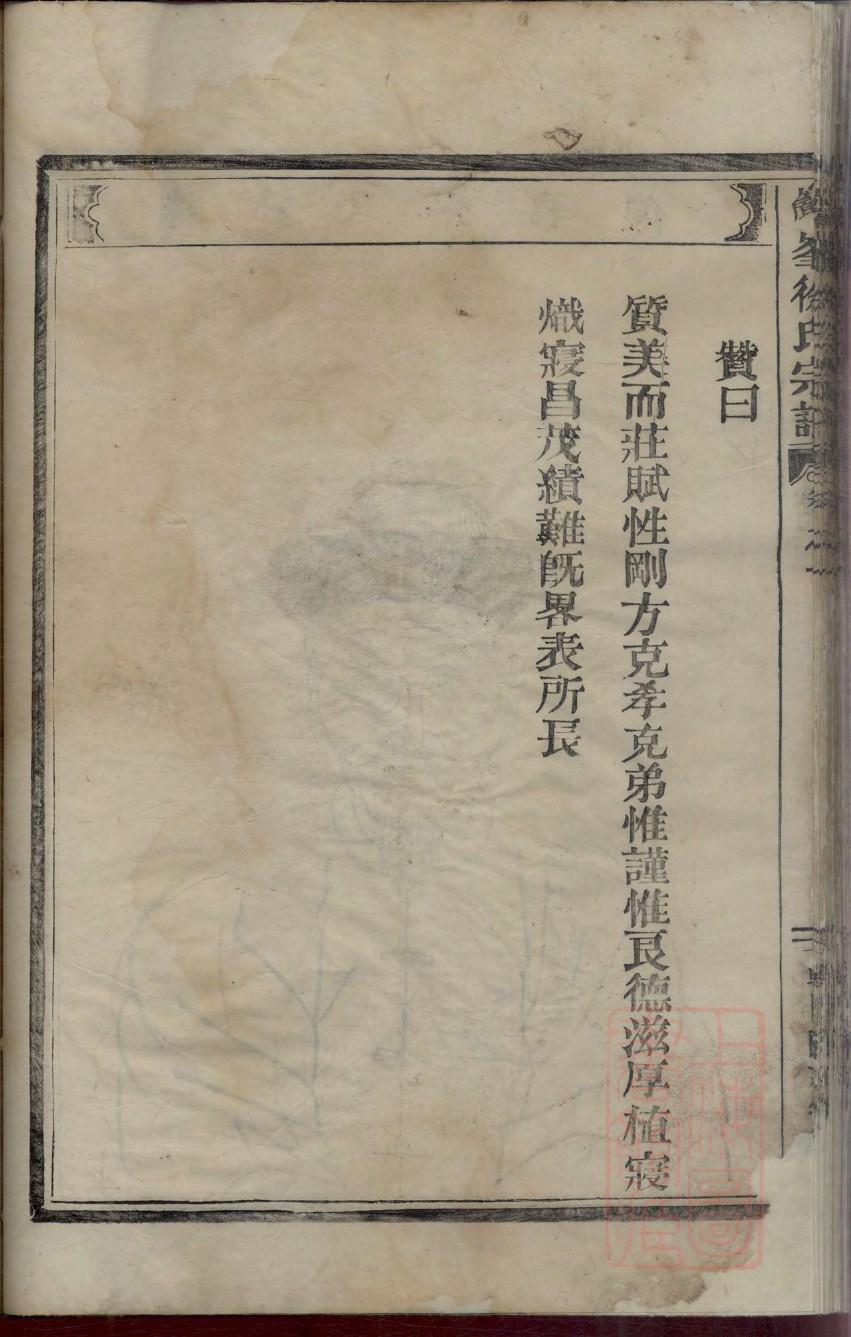 贊曰
質美而莊賦性剛方克孝克弟惟謹惟良德滋厚植寖
熾寖昌茂績難旣畧表所長
峯徐氏宗譜